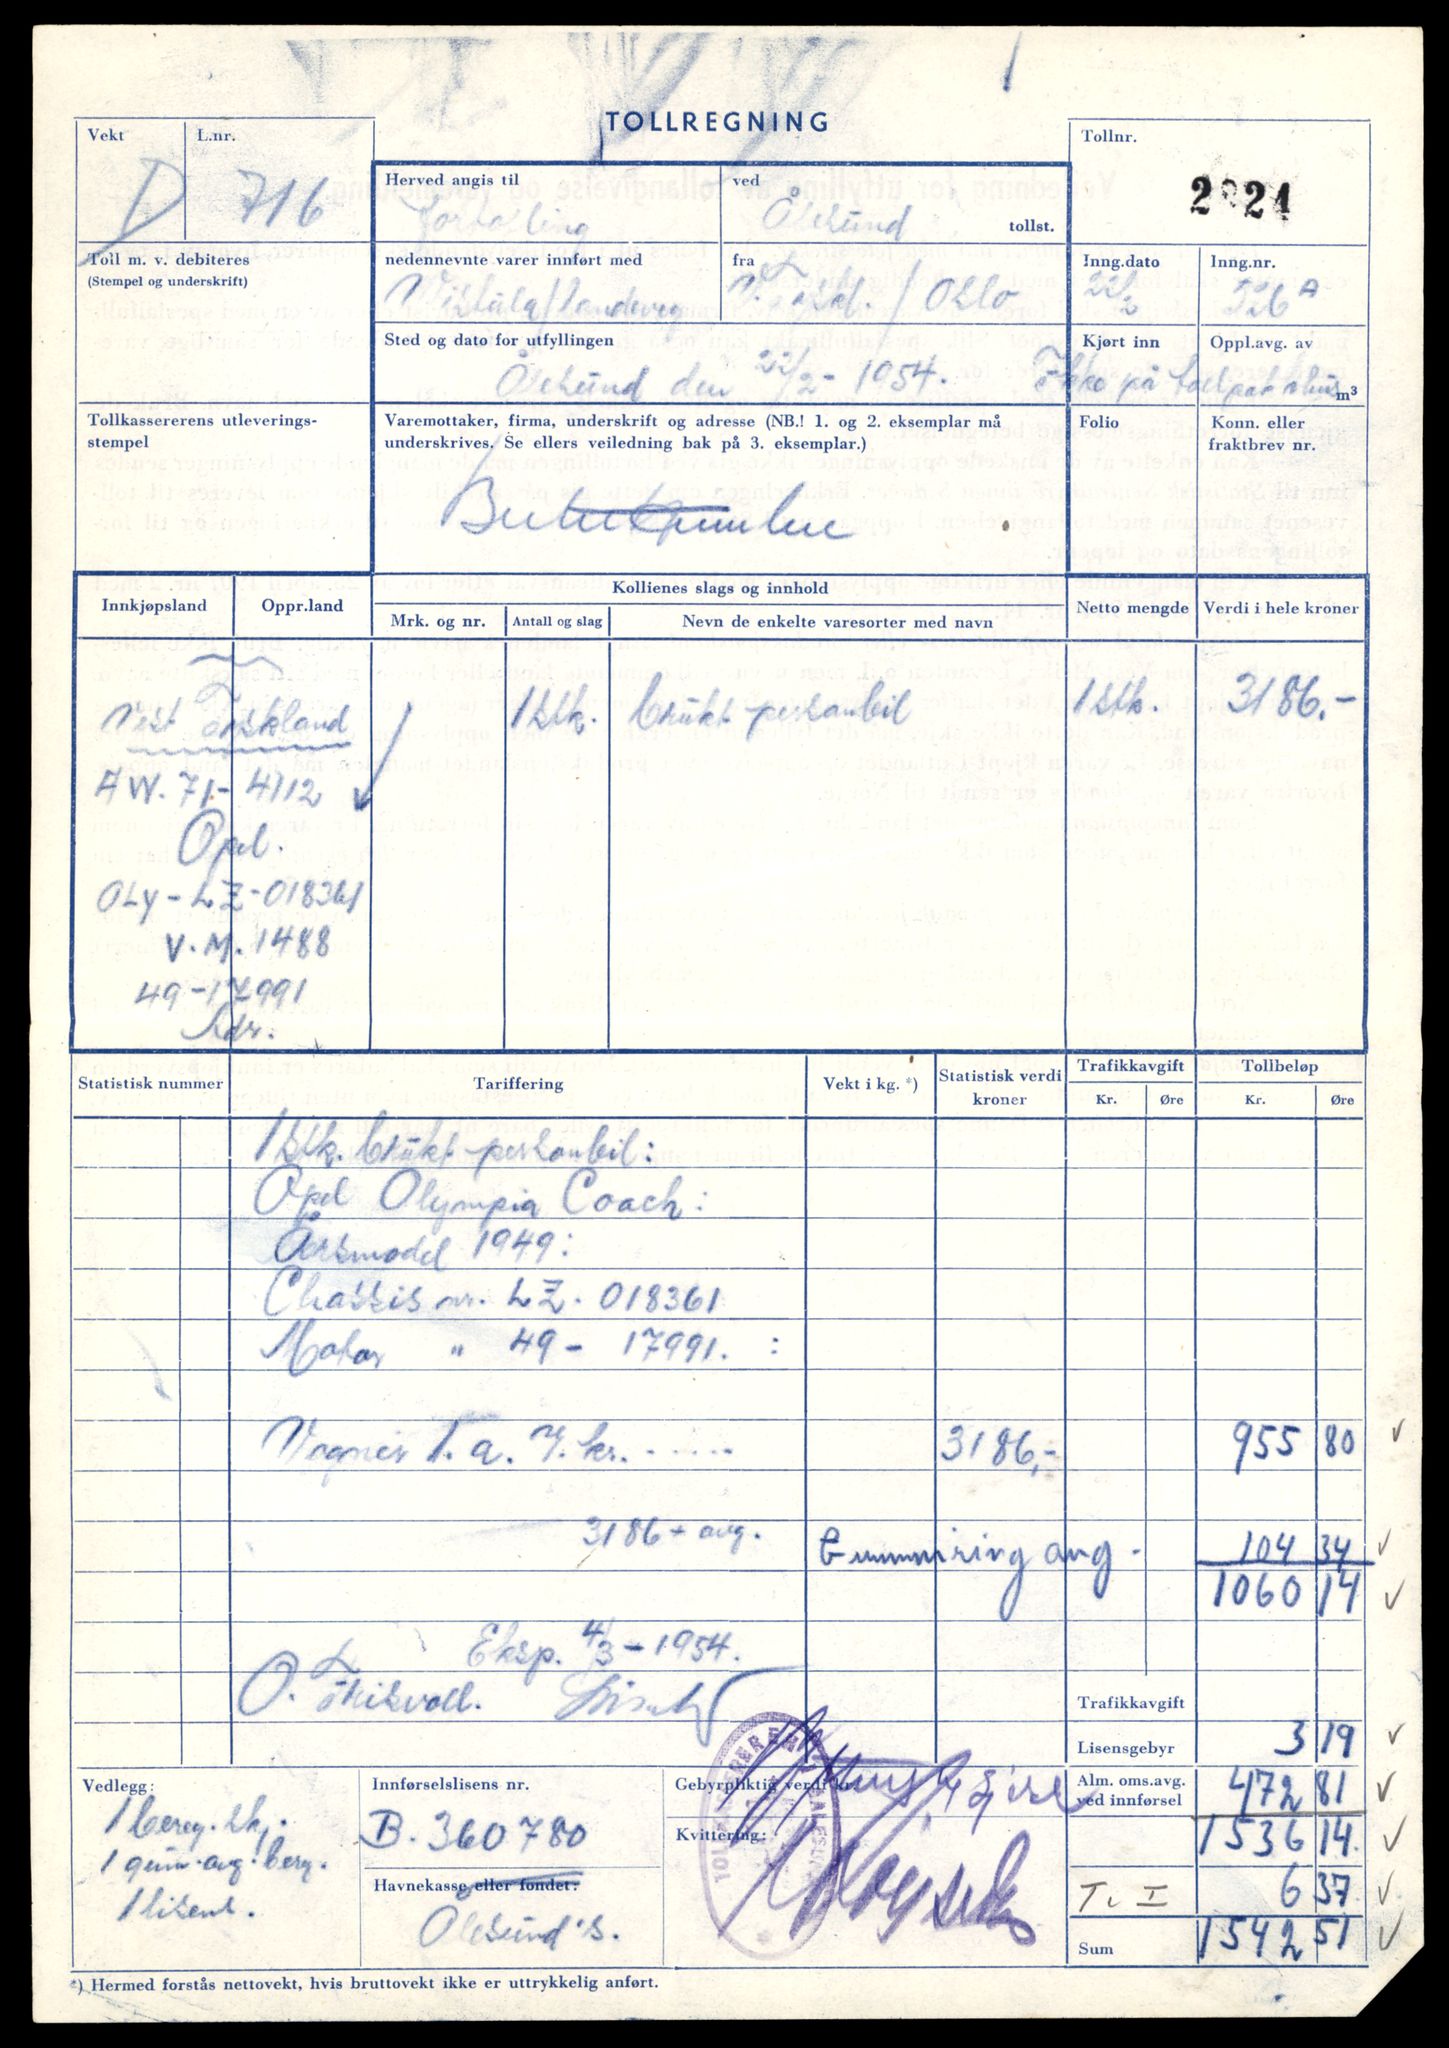 TOLLREGNING
Vekt
L.nr.
D 716
Herved angis til
fortolling
ved
Ålesund tollst.
Tollnr.
2824
Toll m. v. debiteres
(Stempel og underskrift)
nedennevnte varer innført med
Vistula/landeveg
fra
V. Tyskl. / Oslo
Inng.dato
22/2
Inng.nr.
A
Sted og dato for utfyllingen
Ålesund den 22/2 - 1954.
Kjørt inn
Oppl.avg. av
Ikke på tollpakkhus m³
Tollkassererens utleverings-
stempel
Varemottaker, firma, underskrift og adresse (NB.! 1. og 2. eksemplar må
underskrives. Se ellers veiledning bak på 3. eksemplar.)
Folio
Konn. eller
fraktbrev nr.
Innkjøpsland
Oppr.land
Kollienes slags og innhold
Mrk. og nr.
Antall og slag
Nevn de enkelte varesorter med navn
Netto mengde
Verdi i hele kroner
Vest Tyskland
1 stk. brukt personbil 1 stk. 3186,-
AW. 71- 4112
Opel.
OLy - LZ - 018361
V.M. 1488
49 - 17991
Statistisk nummer
Tariffering
Vekt i kg. *)
Statistisk verdi
kroner
Trafikkavgift
Kr. Øre
Tollbeløp
Kr. Øre
1 stk. brukt personbil:
Opel Olympia Coach:
Årsmodel 1949:
Chassis nr. LZ. 018361
Motor " 49 - 17991. :
Vogner 1. a. 7. kr. ..... 3186,- 955 80
3186 + avg. Gummiring avg. 104 34
1060 14
Eksp. 4/3 - 1954.
O.
Trafikkavgift
Lisensgebyr 3 19
Vedlegg:
Innførselslisens nr.
Gebyrpliktig verdi kr.
Alm. oms.avg.
ved innførsel 472 81
1 bereg.
1 gum. avg. berg.
1 lisens.
B. 360780
Kvittering:
1536 14
Havnekasse eller fondet:
Ålesund's.
T. I 6 37
Sum 1542 51
*) Hermed forstås nettovekt, hvis bruttovekt ikke er uttrykkelig anført.